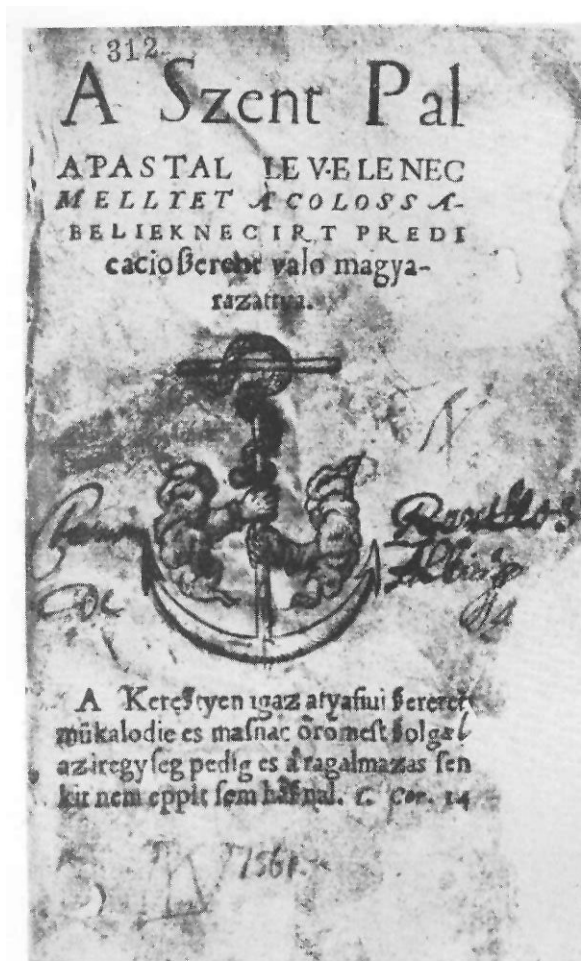 312
A Szent Pal
APASTAL LEVELENEC
MELLYET A COLOSSA-
BELIEKNEC IRT PREDI
cacio ßerent valo magya-
razattya.
A Kereßtyen igaz atyafiui ßeretet
mükalodie es masnac öromest ßolgal
az iregyseg pedig es a ragalmazas sen
kit nem eppit sem haßnal. C. Cor. 14
1561.